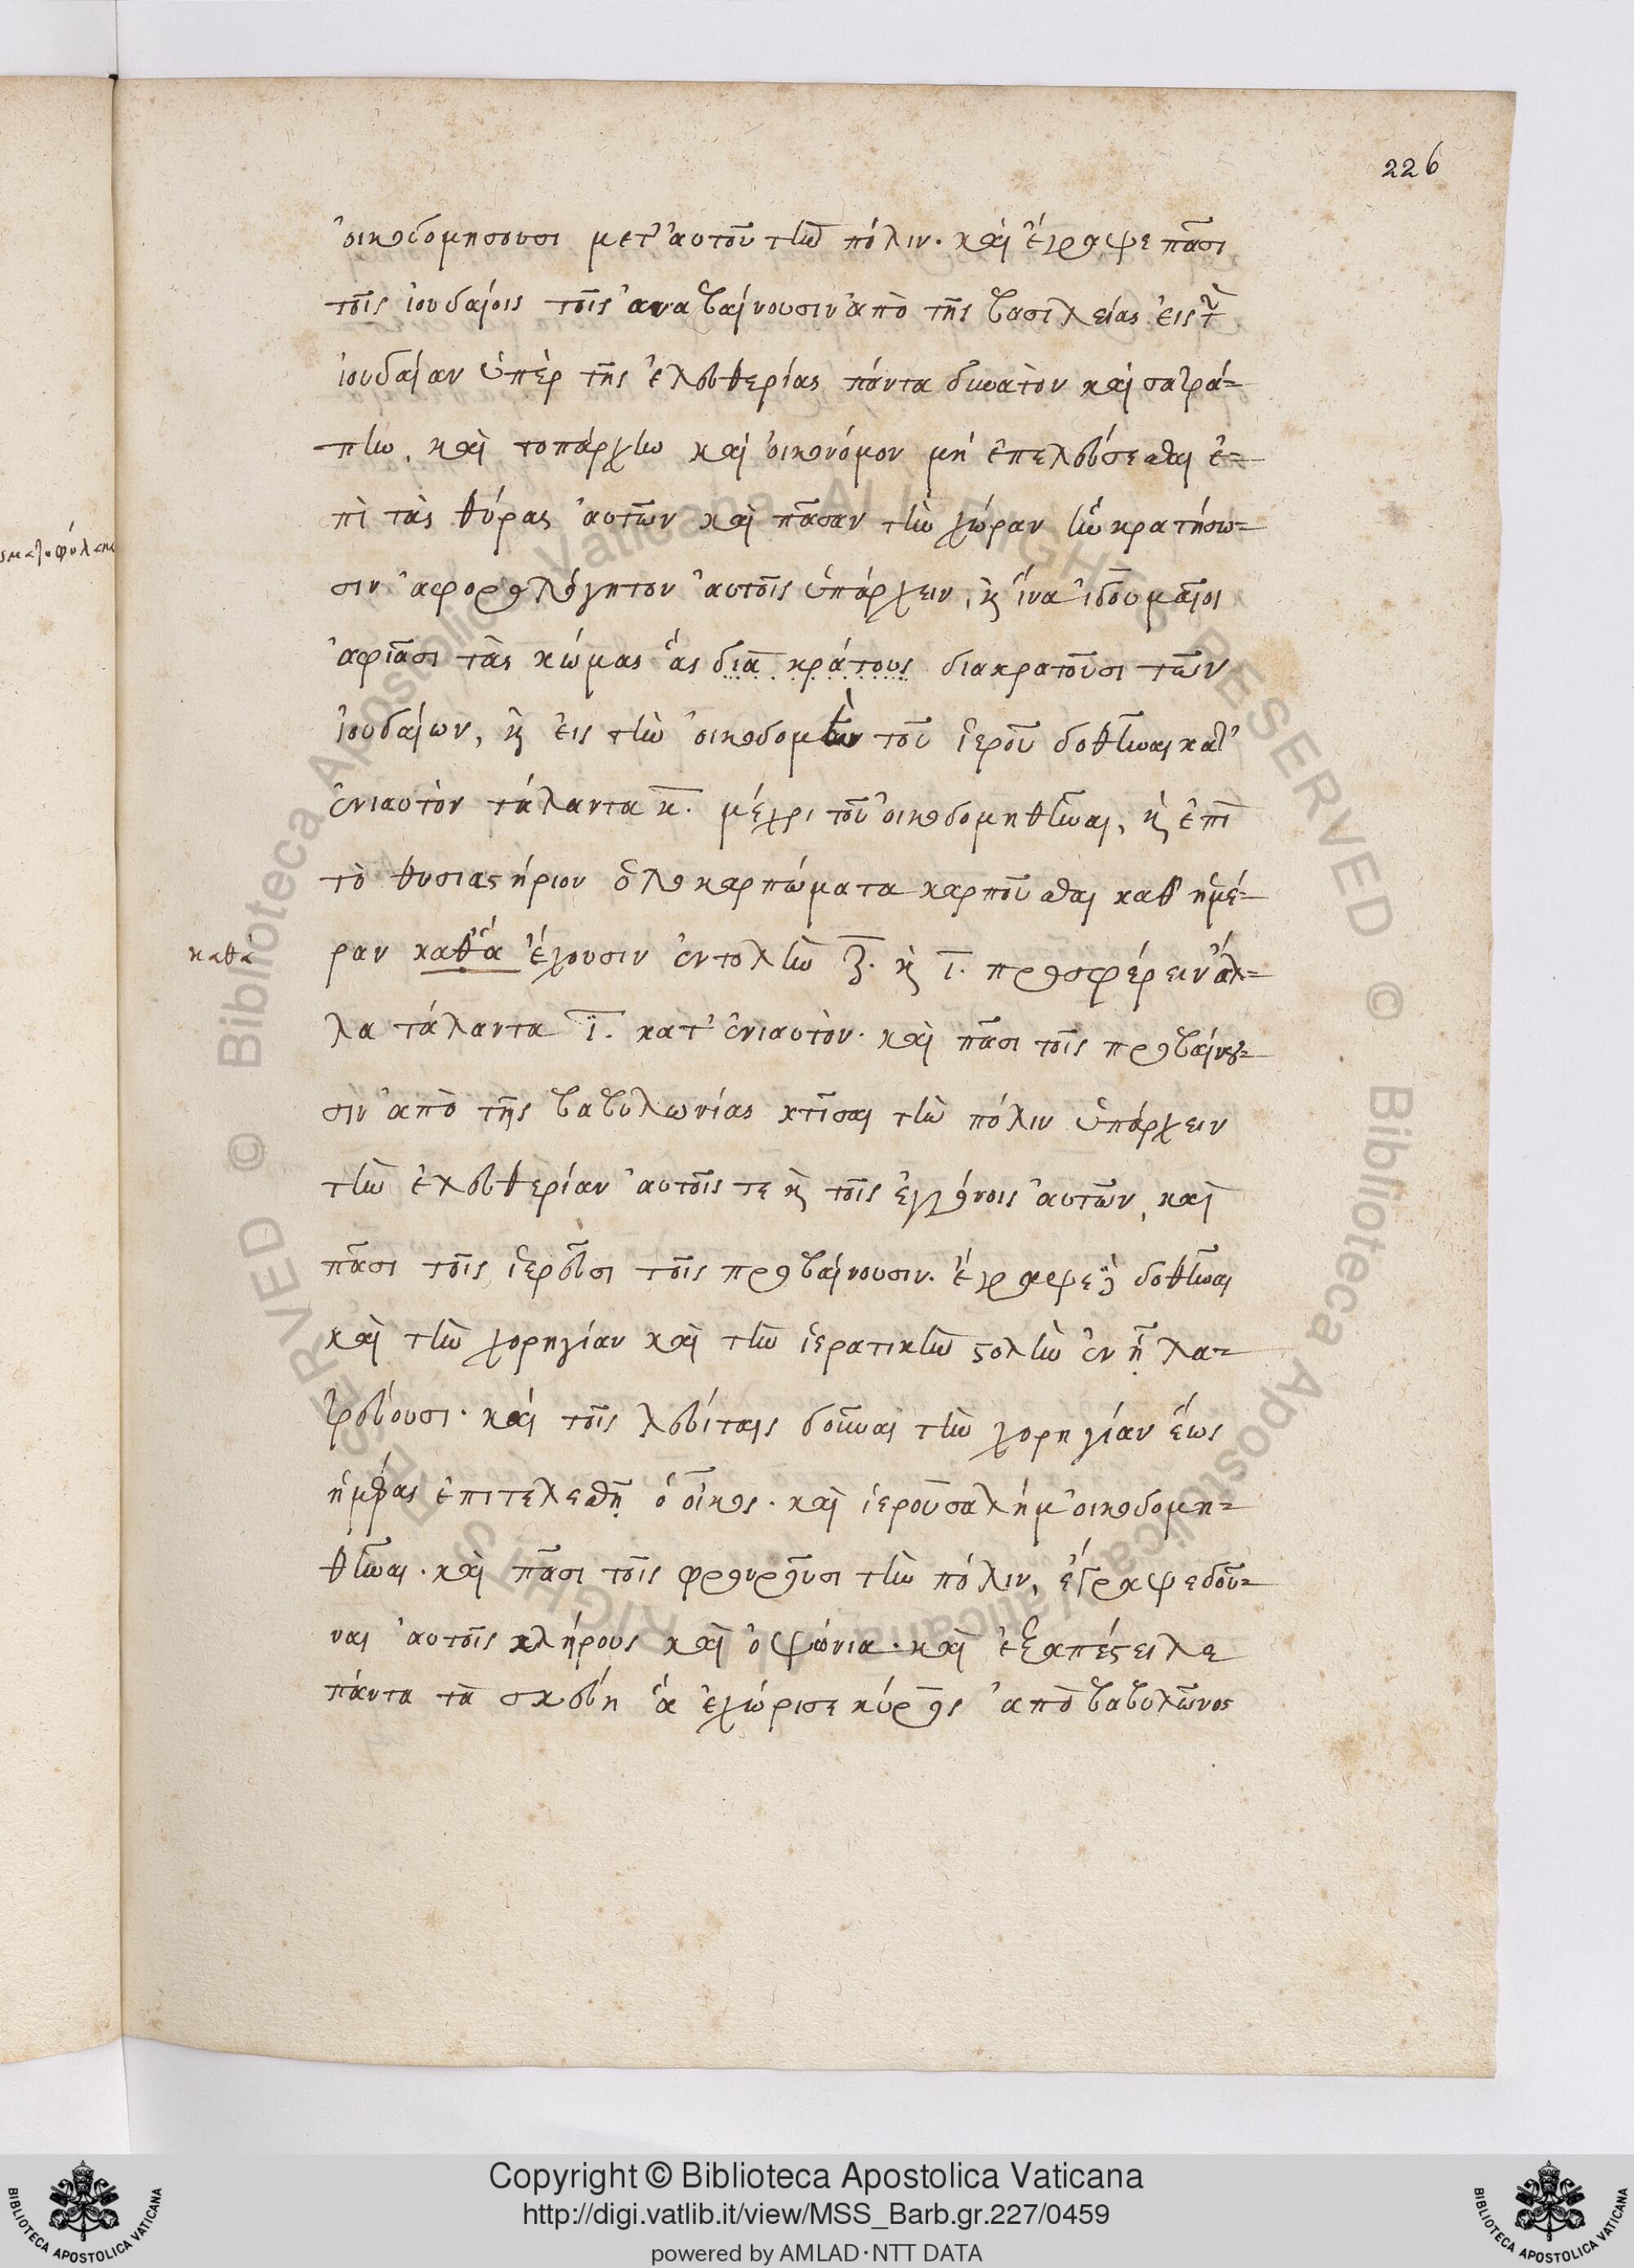 226
οἰκοδομησουσι μετ' αὐτοῦ τὴν πόλιν· καὶ ἔγραψε πᾶσι
τοῖς ἰουδαίοις τοῖς ἀναβαίνουσιν ἀπὸ τῆς βασιλείας εἰς τὴν
ἰουδαίαν ὑπὲρ τῆς ἐλευθερίας πάντα δυνατὸν καὶ σατρά-
πην, καὶ τοπάρχην καὶ οἰκονόμον μὴ ἐπελεύσεσθαι ἐ-
πὶ τὰς θύρας αὐτῶν καὶ πᾶσαν τὴν χώραν ἣν κρατήσω-
σιν ἀφορολόγητον αὐτοῖς ὑπάρχειν, κ ἵνα ἰδουμαῖοι
ἀφιᾶσι τὰς κώμας ἃς διὰ κράτους διακρατοῦσι τῶν
ἰουδαίων, κ εἰς τὴν οἰκοδομὴν τοῦ ἱεροῦ δοθῆναι κατ'
ἐνιαυτὸν τάλαντα κ̅. μέχρι τοῦ οἰκοδομηθῆναι, κ ἐπὶ
τὸ θυσιαστήριον ὁλοκαρπώματα καρποῦσθαι καθ ἡμέ-
καθὰ
ραν καθ' ἃ ἔχουσιν ἐντολὴν ζ̅. κ ι̅. προσφέρειν ἄλ-
λα τάλαντα ι̅. κατ' ἐνιαυτὸν· καὶ πᾶσι τοῖς προβαίνου-
σιν ἀπὸ τῆς βαβυλωνίας κτῖσαι τὴν πόλιν ὑπάρχειν
τὴν ἐλευθερίαν αὐτοῖς τε κ τοῖς ἐγγόνοις αὐτῶν, καὶ
πᾶσι τοῖς ἱερεῦσι τοῖς προβαίνουσιν. ἔγραψε δοθῆναι
καὶ τὴν χορηγίαν καὶ τὴν ἱερατικὴν στολὴν ἐν ᾗ λα-
τρεύουσι· καὶ τοῖς λευίταις δοῦναι τὴν χορηγίαν ἕως
ἡμέρας ἐπιτελεσθῇ ὁ οἶκος. καὶ ἱερουσαλὴμ οἰκοδομη-
θῆναι. καὶ πᾶσι τοῖς φρουροῦσι τὴν πόλιν, ἔγραψε δοῦ-
ναι αὐτοῖς κλήρους καὶ ὀψώνια· καὶ ἐξαπέστειλε
πάντα τὰ σκεύη ἃ ἐχώρισε κύρος ἀπὸ βαβυλῶνος
Copyright © Biblioteca Apostolica Vaticana
http://digi.vatlib.it/view/MSS_Barb.gr.227/0459
powered by AMLAD·NTT DATA